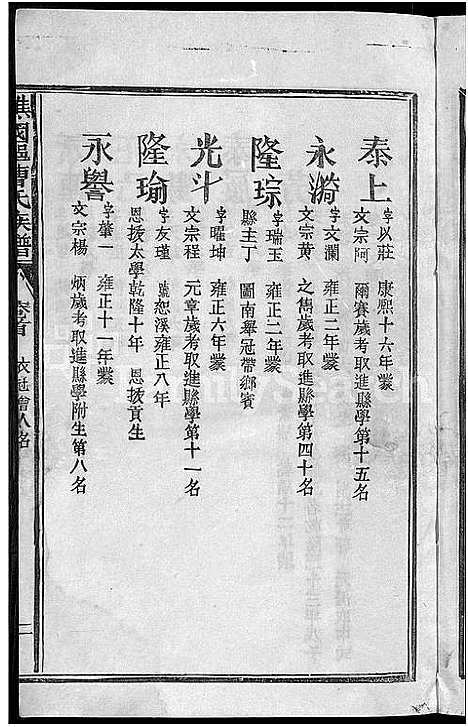 泰上
字以莊 康熙十六年蒙
文宗阿 爾賽歲考取進縣學第十五名
永漪
字文瀾 雍正二年蒙
文宗黃 之雋歲考取進縣學第四十名
隆琮
字瑞玉 雍正二年蒙
縣主丁 圖南舉冠帶鄉賓
光斗
字曜坤 雍正六年蒙
文宗程 元章歲考取進縣學第十一名
隆瑜
字友瑾 號恕溪雍正八年
恩拔太學乾隆十年 恩拔貢生
永譽
字肇一 雍正十一年蒙
文宗楊 炳歲考取進縣學附生第八名
譙國曹氏族譜 卷首 衣冠
二